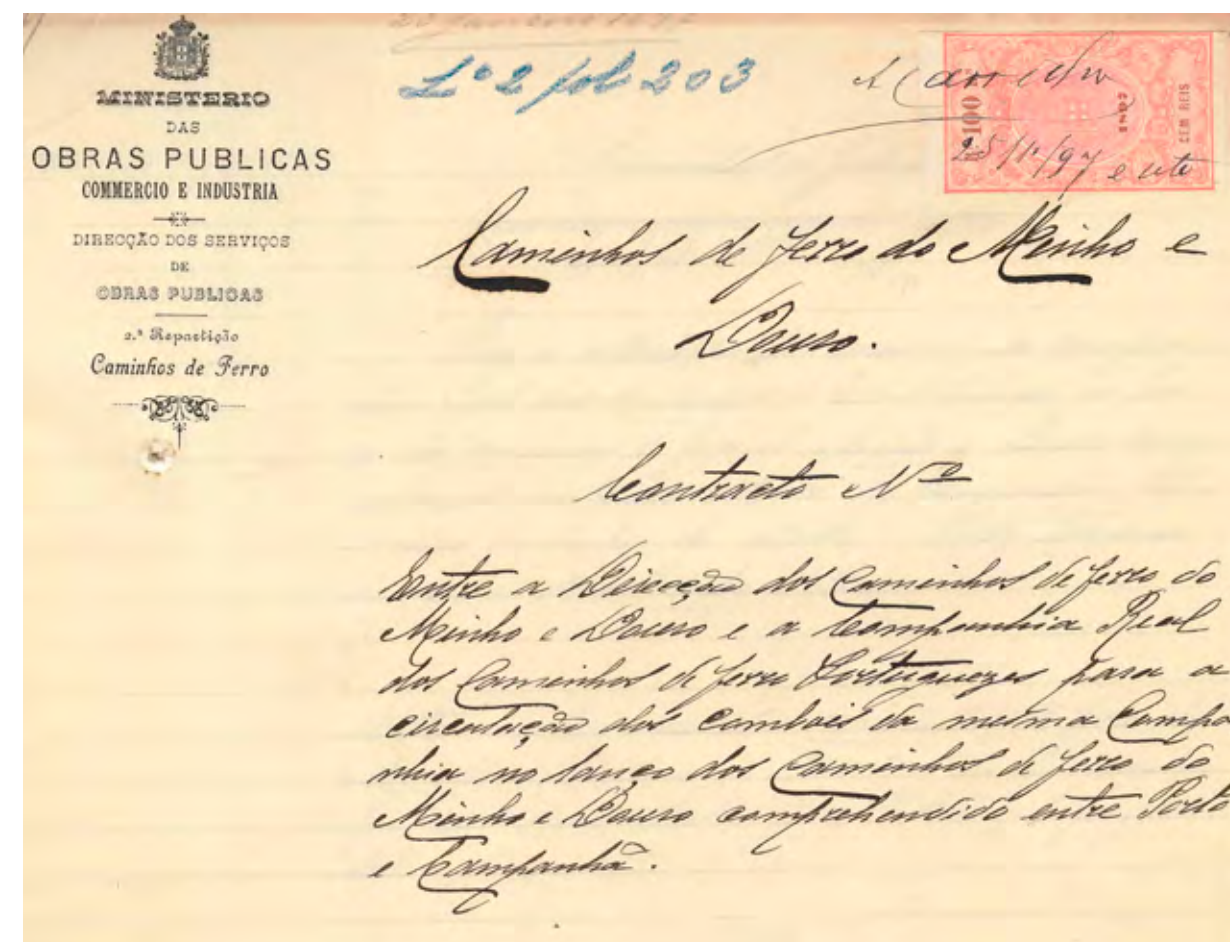 MINISTERIO
DAS
OBRAS PUBLICAS
COMMERCIO E INDUSTRIA
DIRECÇÃO DOS SERVIÇOS
DE
OBRAS PUBLICAS
2.ª Repartição
Caminhos de Ferro
Lº 2 fol 203
100
1897
CEM REIS
25/1º/97
Caminhos de ferro do Minho e
Douro.
Contracto Nº
Entre a Direcção dos Caminhos de ferro do
Minho e Douro e a Companhia Real
dos Caminhos de ferro Portuguezes para a
circulação dos comboios da mesma Compa
nhia no lanço dos Caminhos de ferro do
Minho e Douro comprehendido entre Porto
e Campanhã.